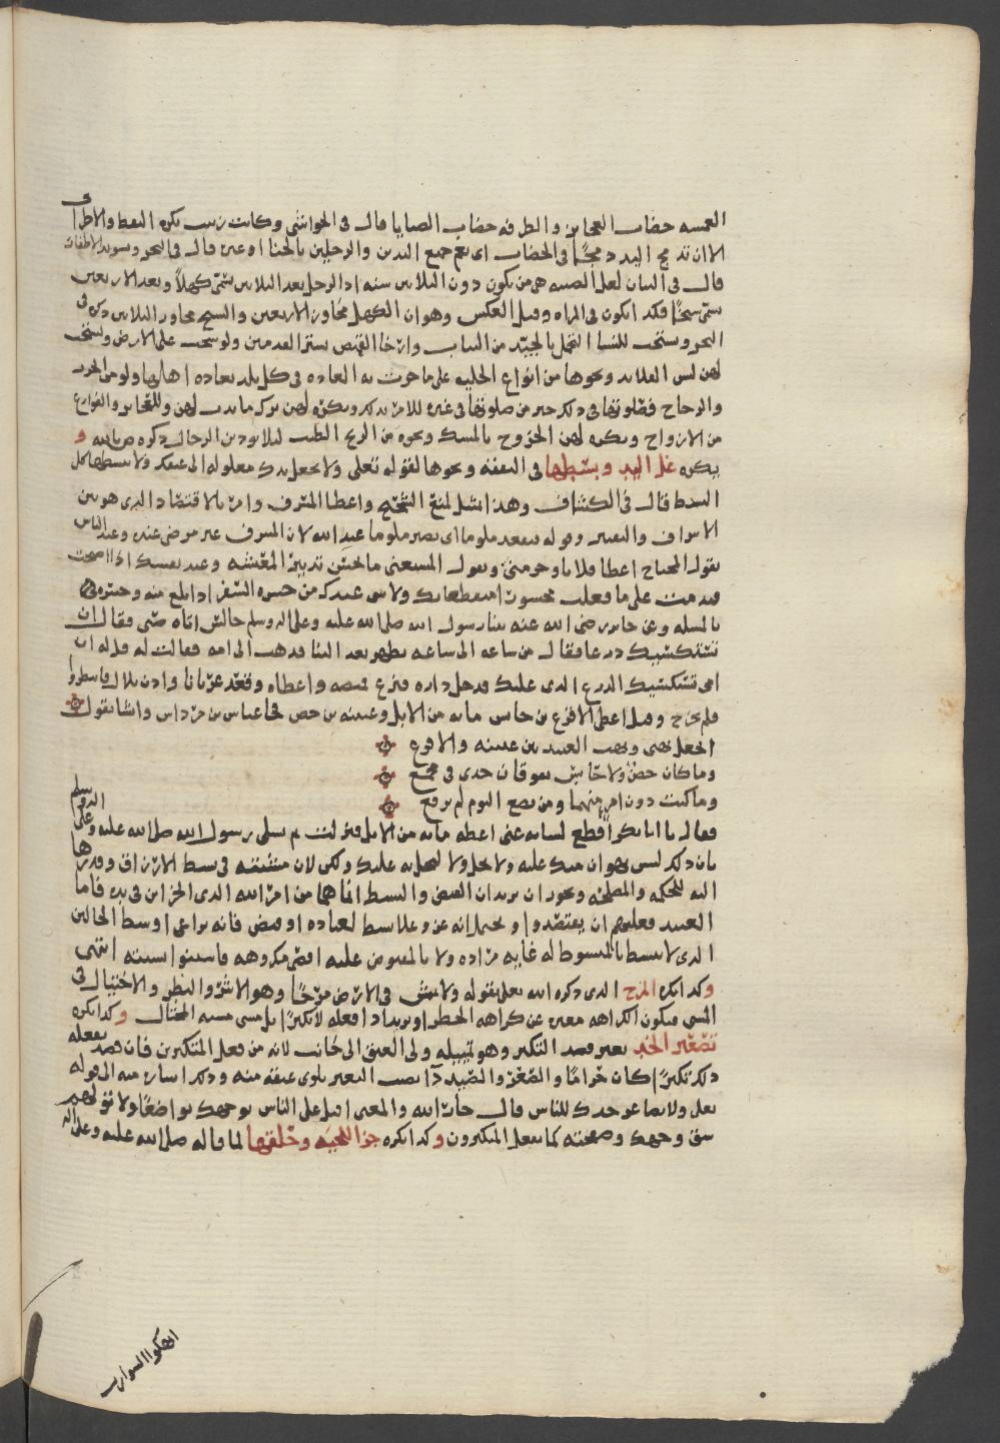 الغمسه خضاب العجائز والطرفه خضاب الصبايا قال في الحواشي وكانت زينب تكره النقط والاطراف
الا ان تدمج اليد دمجًا في الخضاب اي تعم جميع اليدين والرجلين بالحنا او غيره قال في البحر وتسويد الاظفار
قال في البيان لعل الصبيه هي من تكون دون الثلاثين سنه اذ الرجل بعد الثلاثين يسمى كهلًا وبعد الاربعين
يسمى شيخًا فكذا تكون في المراه وقيل العكس وهو ان الكهل مجاوز الاربعين والشيخ مجاوز الثلاثين ذكره في
البحر ويستحب للنسا التجمل بالجيّد من الثياب وارخا القميص لستر القدمين ولو سحب على الارض ويستحب
لهن لبس القلائد ونحوها من انواع الحليه على ما جرت به العاده في كل بلد بعاده اهلها ولو من الخرز
والزجاج فصلوتها في ذلك خير من صلوتها في غيره للامر بذلك ويكره لهن ترك ما يندب لهن وللعجايز والفوارغ
من الازواج ويكره لهن الخروج بالمسك ونحوه من الريح الطيب لئلا يوذين الرجال ذكره ص بالله و
يكره غل اليد وبسطها في النفقه ونحوها لقوله تعلى ولا تجعل يدك مغلوله الى عنقك ولا تبسطها كل
البسط قال في الكشاف وهذا مثل لمنع الشحيح واعطا المسرف وامر بالاقتصاد الذي هو بين
الاسراف والتقتير وقوله فتقعد ملوما اي تصير ملوما عند الله لان المسرف غير مرضي عنده وعند الناس
يقول المحتاج اعطا فلانا وحرمني ويقول المستغني ما يحسن تدبير المعيشه وعند نفسك اذا احتجت
فندمت على ما فعلت محسورًا منقطعا بك ولا شي عندك من حسره السفر اذا بلغ منه وحسره
بالمسله وعن جابر رضي الله عنه بينا رسول الله صلى الله عليه وعلى اله وسلم جالس اتاه صبي فقال ان
تستكسيك درعا فقال من ساعه الى ساعه يظهر بعد الينا فذهب الى امه فقالت له قل له ان
امي تستكسيك الدرع الذي عليك فدخل داره فنزع قميصه واعطاه وقعد عريانا واذن بلال فانتظروا
فلم يخرج وقيل اعطى الاقرع بن حابس مايه من الابل وعيينه بن حصن فجا عباس بن مرداس وانشا يقول
اتجعل نهبي ونهب العبيد بين عيينه والاقرع
وما كان حصنٌ ولا حابس يفوقان جدي في مجمع
وما كنت دون امرءٍ منهما ومن تضع اليوم لم يرفع
فقال يا ابا بكر اقطع لسانه عني اعطه مايه من الابل فنزلت ثم سلى رسول الله صلى الله عليه وعلى اله وسلم
بان ذلك ليس لهوان منك عليه ولا لبخل به عليك ولكن لان مشيئته في بسط الارزاق وقدرها
اليه للحكمه والمصلحه ويجوز ان يريد ان القبض والبسط انما هما من امر الله الذي الخزاين في يده فاما
العبيد فعليهم ان يقتصدوا ويحتمل انه عز وعلا بسط لعباده او قبض فانه يراعي اوسط الحالين
الذي لا يبسط بالمبسوط له غايه مراده ولا بالمقبوض عليه اقصى مكروهه فاستنوا بسنته انتهى
وكذا يكره المرح الذي ذكره الله تعلى بقوله ولا تمش في الارض مرحًا وهو الاشر والبطر والاختيال في
المشي فيكون الكراهه معبره عن كراهه الحظر او يريد اذا فعله لا تكبرًا بل مشى مشيه المختال وكذا يكره
تصعير الخد بغير قصد التكبر وهو تمييله ولي العنق الى جانب لانه من فعل المتكبرين فان قصد بفعله
ذلك تكبرًا كان حرامًا والصَّعَر والصَّيَد دآ يصيب البعير يلوي عنقه منه وذكر اشاره منه الى قوله
تعلى ولا تصاعر خدك للناس قال جار الله والمعنى اقبل على الناس بوجهك تواضعًا ولا تولهم
شق وجهك وصفحته كما يفعل المتكبرون وكذا يكره جز اللحيه وحلقها لما قاله صلى الله عليه وعلى اله
انهكوا الشوارب